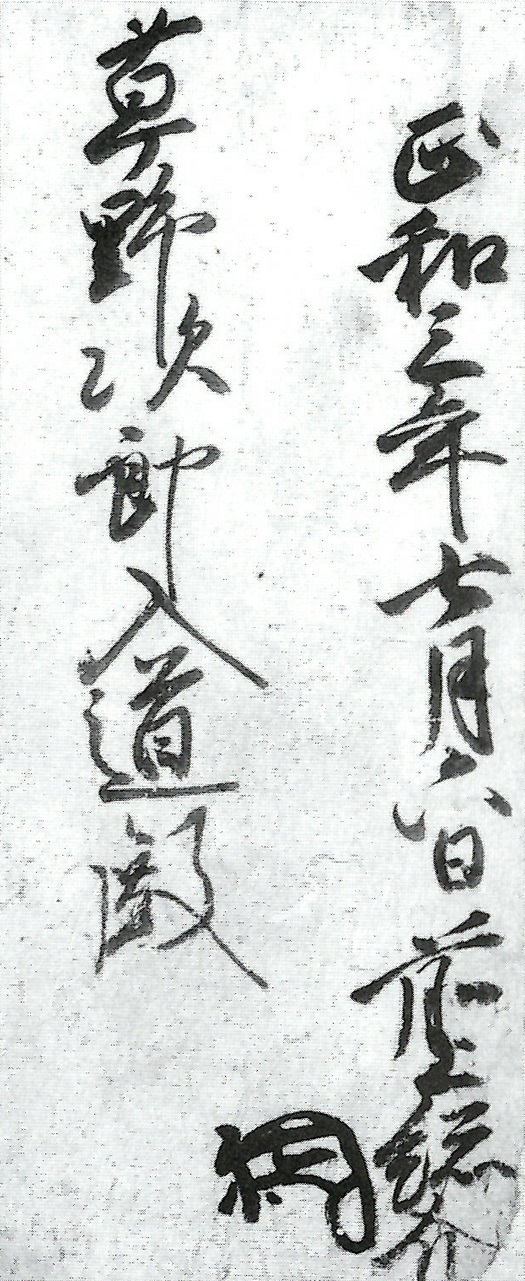 正和三年七月六日 前上総介
草野次郎入道殿